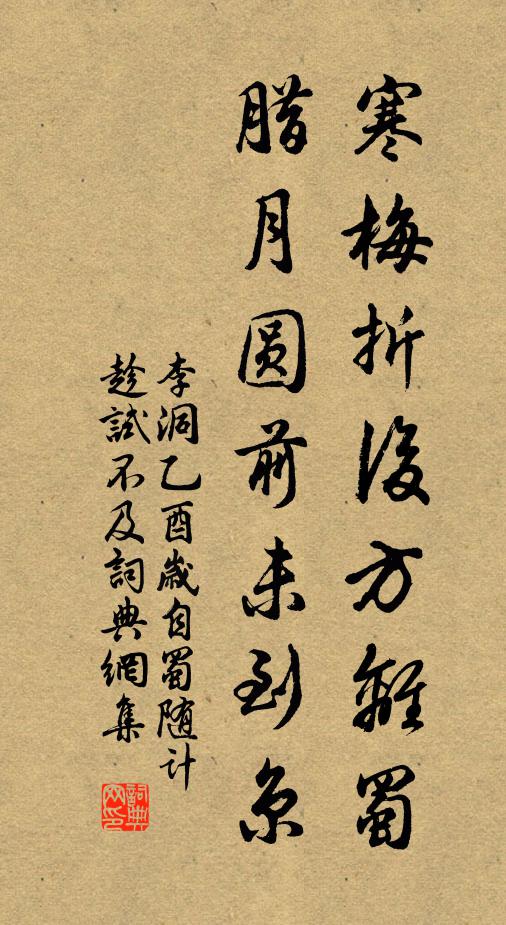 寒梅折後方離蜀
腊月圆前未到京
李洞乙酉歲自蜀随计
趁試不及詞典網集
詞典网印